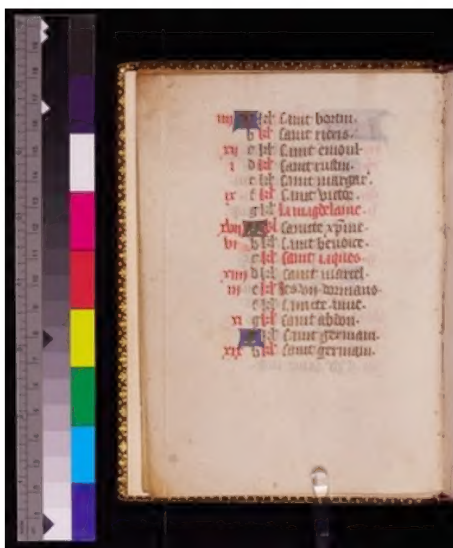 iiij A kl saint bertin.
b kl saint
xij c kl saint ernoul.
i d kl saint
e kl saint margar.
ix f kl saint victor.
g kl la magdelaine.
xvij A kl saincte xpine.
vi b kl saint benoite.
c kl saint iaques.
xiiij d kl saint marcel.
iij e kl les vij dormans.
f kl saincte anne.
xi g kl saint abdon.
A kl saint germain.
xix b kl saint germain.